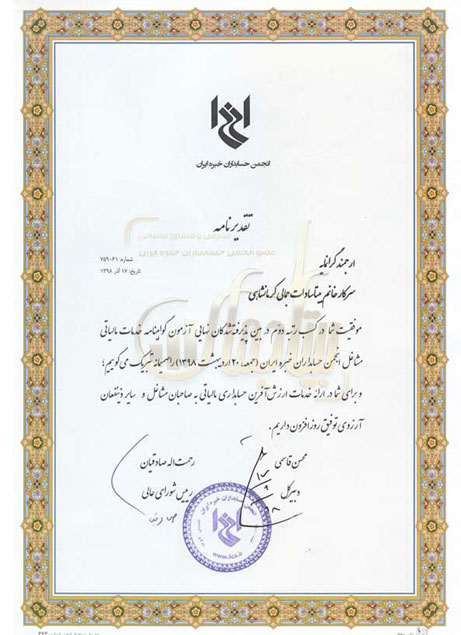 انجمن حسابداران خبره ایران
تقدیرنامه
ارجمند گرانمایه
شماره: ۷۵۹۰۶۱
تاریخ: ۱۷ آذر ۱۳۹۸
سرکار خانم بیتاسادات جمالی کرمانشاهی
موفقیت شما در کسب رتبه دوم در بین پذیرفته‌شدگان نهایی آزمون گواهینامه خدمات مالیاتی
مشاغل انجمن حسابداران خبره ایران (جمعه، ۲۰ اردیبهشت ۱۳۹۸) را صمیمانه تبریک می‌گوییم؛
و برای شما در ارائه خدمات ارزش‌آفرین حسابداری مالیاتی به صاحبان مشاغل و سایر ذینفعان
آرزوی توفیق روزافزون داریم.
محسن قاسمی
رحمت‌اله صادقیان
دبیرکل
رییس شورای عالی
www.iica.ir